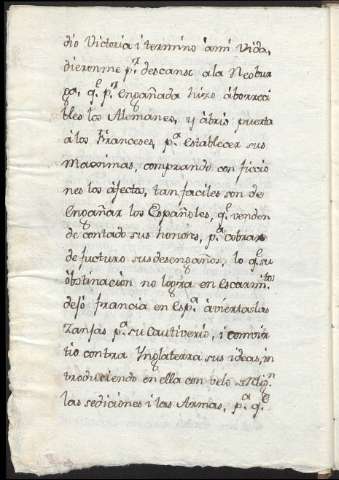 dio Victoria i termino â mi Vida,
dieronme p.r descanso a la Neobur
ga, q.e p.r engañada hizo âborreci
bles los Alemanes, y âbriò puerta
â los Franceses, p.a establecer sus
Maximas, comprando con ficcio
nes los âfectos, tan faciles son de
engañar los Españoles, q.e venden
de contado sus honores, p.a cobrar
de futturo sus desengaños, lo q.e su
obstinacion no logra en Escarm.tos
dejò francia en Esp.a âviertas las
Zanjas p.a su Cautiverio, i convir
tio contra Ynglaterra sus ideas, in
troduciendo en ella con velo de
las sediciones i las Armas, p.a q.e